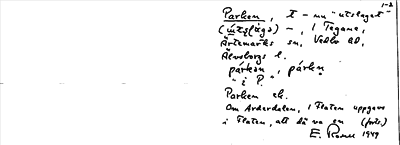 1-2
Parken, t - nu "utslaget"
(ẃtsḷäga) -, i Tegane,
Ärtemarks sn, Vedbo hd,
Älvsborgs l.
párkən, párkn
"i P."
Parken ek.
Om Arderdalen, i Flaten uppgavs
i Flaten, att då va en (forts.)
E. 1949